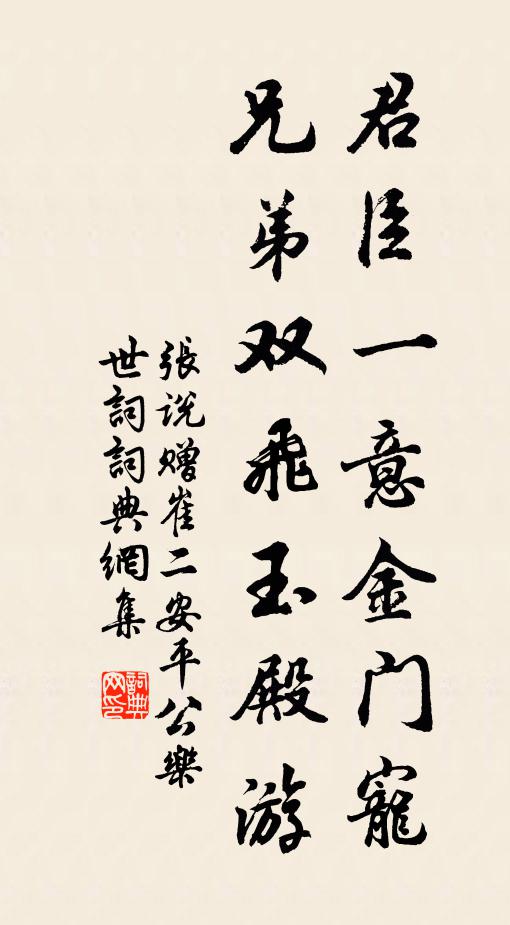 君臣一意金门寵
兄弟双飛玉殿游
張说赠崔二安平公樂
世詞詞典網集
詞典网印